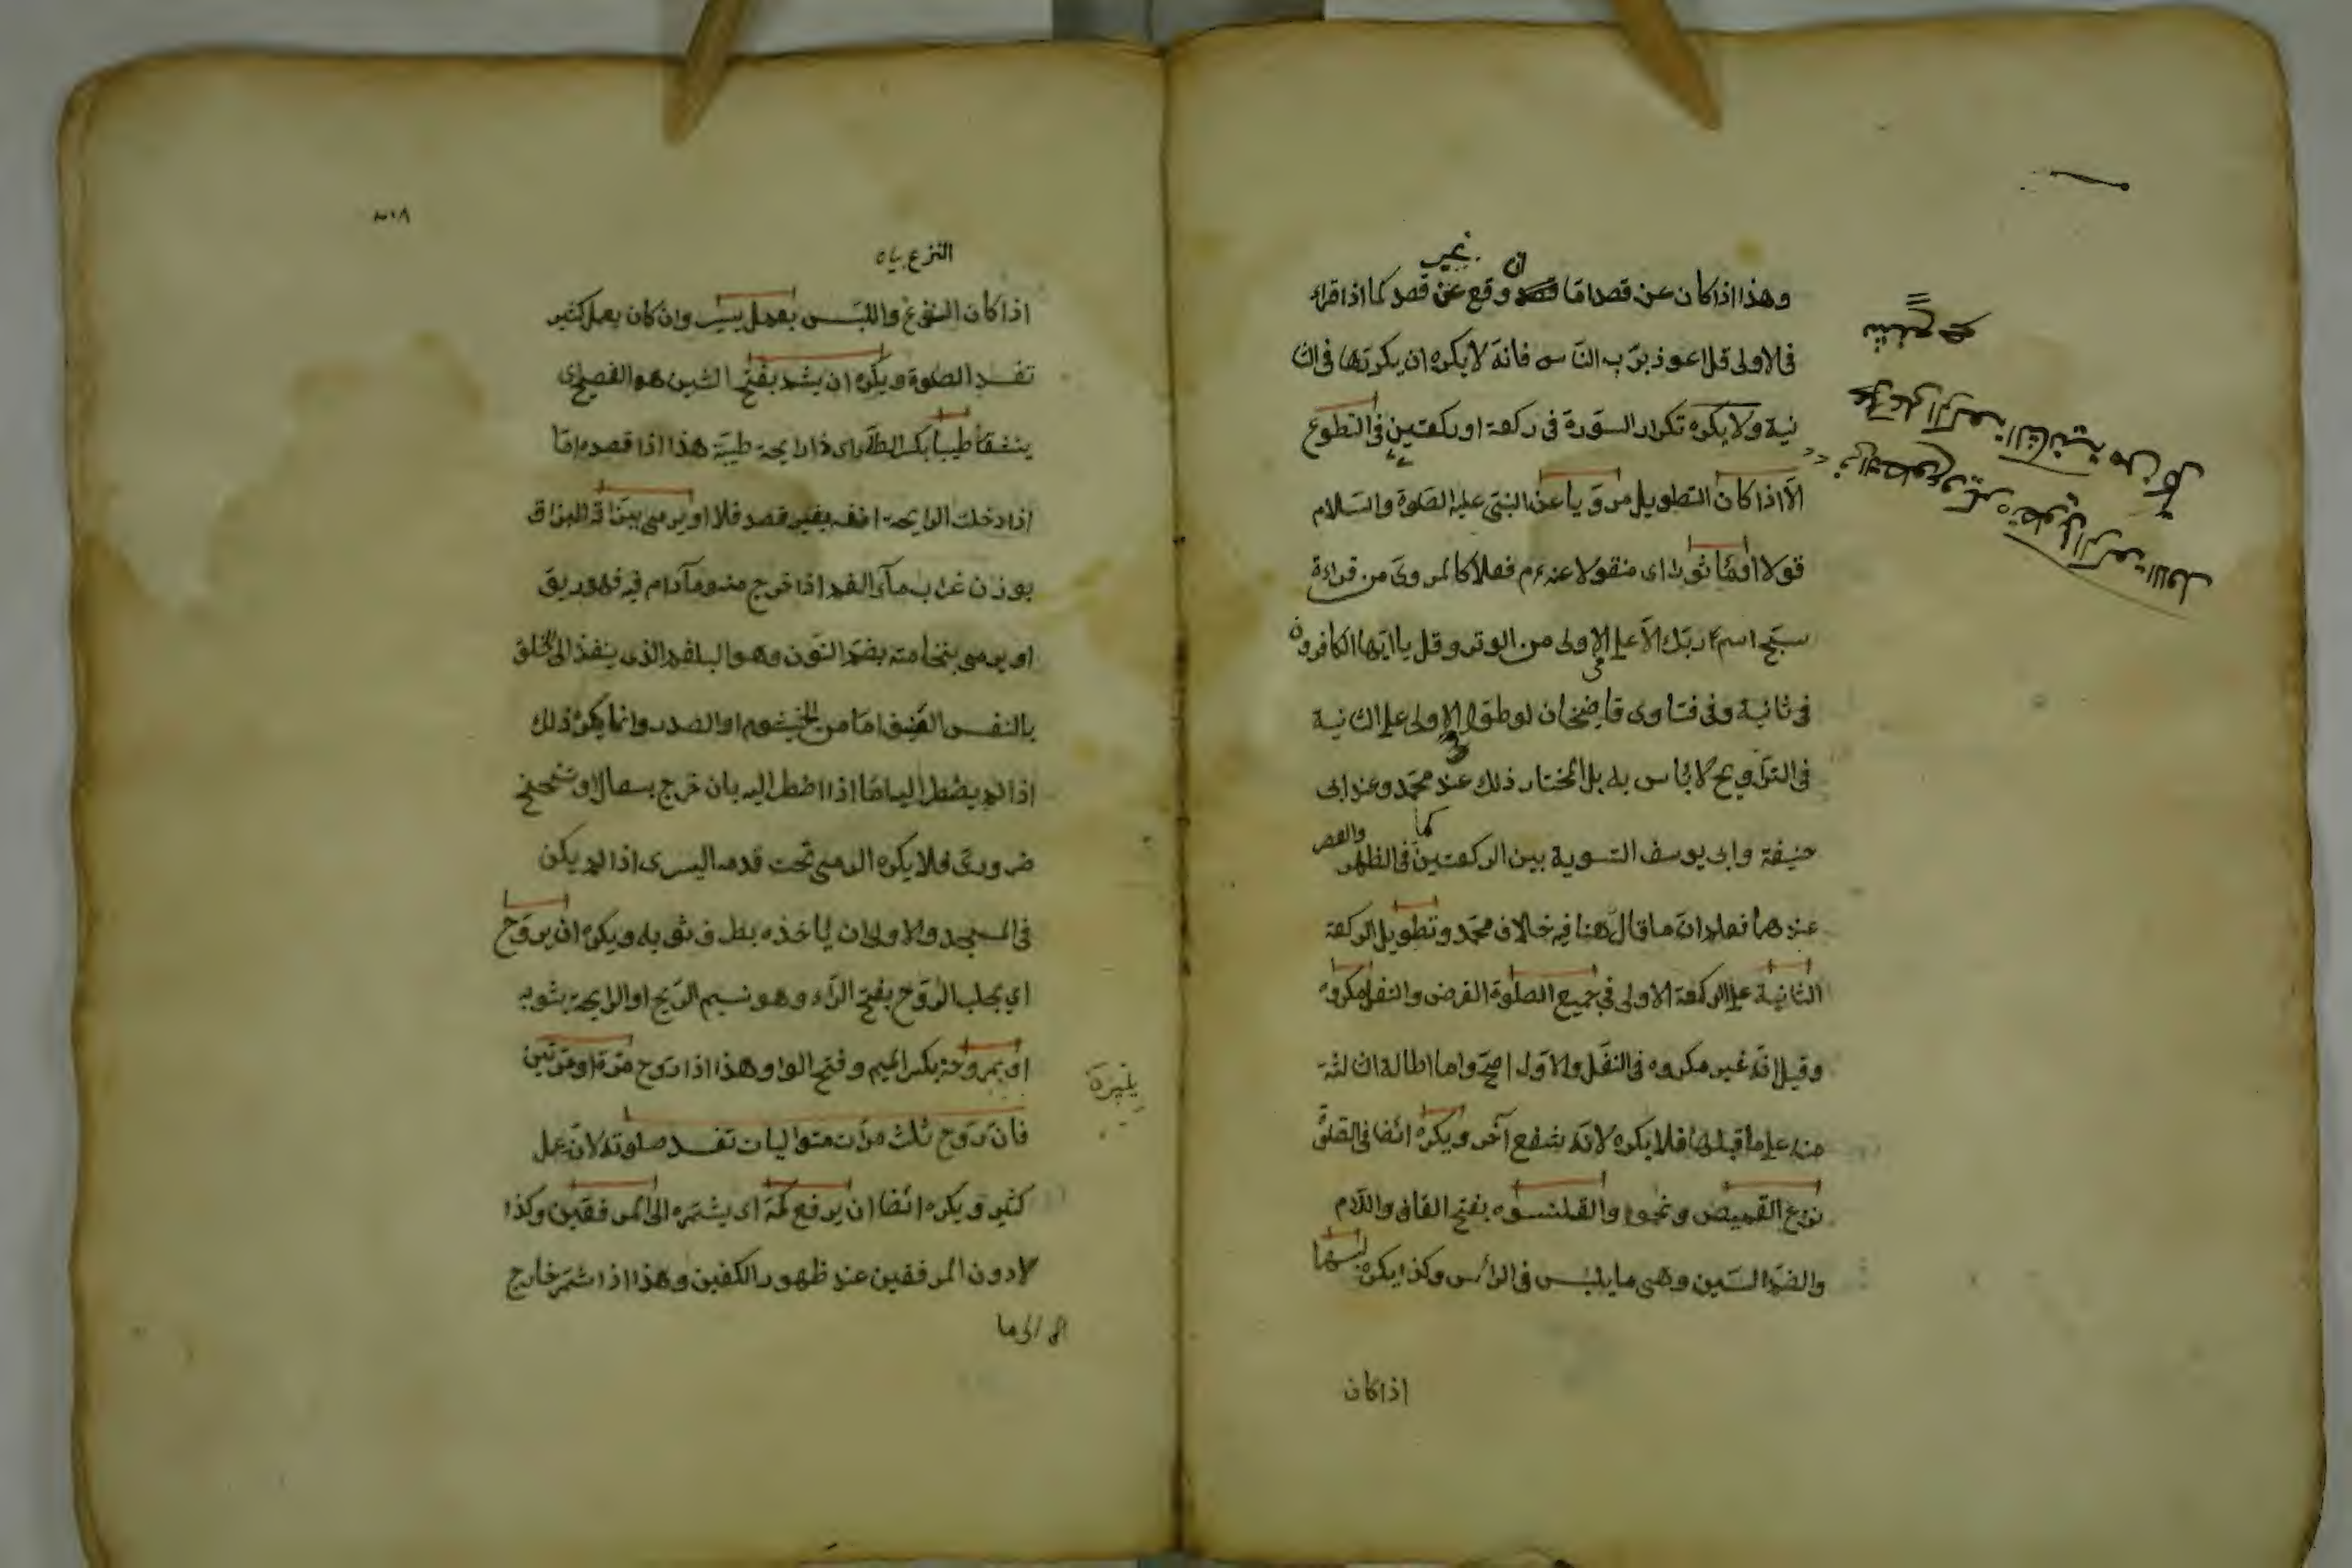 وهذا اذا كان عن قصد امّا ان وقع بغير قصد كما اذا قراء
فى الاولى قل اعوذ بربّ النّاس فانه لا يكره ان يكرّرها فى الثا
نية ولا يكره تكرار السّورة فى ركعة او ركعتين فى التطوع
الّا اذا كان التطويل مروّيا عن النبىّ عليه الصّلوة والسّلام
قولا او مأثورا اى منقولا عنه عم فعلا كالمروىّ من قراءة
سبّح اسم ربّك الاعلى فى الاولى من الوتر وقل يا ايّها الكافرون
فى ثانية وفى فتاوى قاضيخان لو طوّل الاولى على الثانية
فى التراويح لا باس به بل المختار ذلك عند محمّد وعند ابى
حنيفة وابى يوسف التسوية بين الركعتين كما فى الظهر والعصر
عندهما فعلم انّ ما قال هنا فيه خلاف محمّد وتطويل الركعة
الثانية على الركعة الاولى فى جميع الصلوة الفرض والنفل مكروه
وقيل انّه غير مكروه فى النفل والاوّل اصحّ واما اطالة الثالثة
منه على ما قبلها فلا يكره لانّه شفع آخر ويكره ائضا فى الصّلوة
نزع القميص ونحوه والقلنسوه بفتح القاف واللّام
والضمّ السّين وهى ما يلبس فى الرأس وكذا يكره لبسها
اذا كان
٨٠٣
النزع بياه
اذا كان النزع واللبس بعمل يسير وان كان بعمل كثير
تفسد الصلوة ويكره ان يشمّ بفتح الشين هو الفصيح اى
ينشق طيبا بكسر الطّاء اى ذا رايحة طيّبة هذا اذا قصده امّا
اذا دخلت الرايحة انفه بغير قصد فلا او يرمى ببزاقه البزاق
بوزن غراب ماء الفم اذا خرج منه وما دام فيه فهو ريق
او يرمى بنخامته بضمّ النّون وهو البلغم الذى ينفذ الى الحلق
بالنفس العنيف امّا من الخيشوم او الصدر وانما يكره ذلك
اذا لم يضطر اليه امّا اذا اضطر اليه بان خرج بسعال او تنحنح
ضرورىّ فلا يكره الرمى تحت قدمه اليسرى اذا لم يكن
فى المسجد والاولى ان ياخذه بطرف ثوبه ويكره ان يروّح
اى يجلب الرّوح بفتح الرّاء وهو نسيم الرّيح او الرايحة بثوبه
او بمروحة بكسر الميم وفتح الواو وهذا اذا روّح مرّة او مرّتين
فان روّح ثلث مرّات متواليات تفسد صلوته لانّه عمل
كثير ويكره ائضا ان يرفع كمّه اى يشمّره الى المرفقين وكذا
لا دون المرفقين عند ظهور الكفين وهذا اذا شمّر خارج